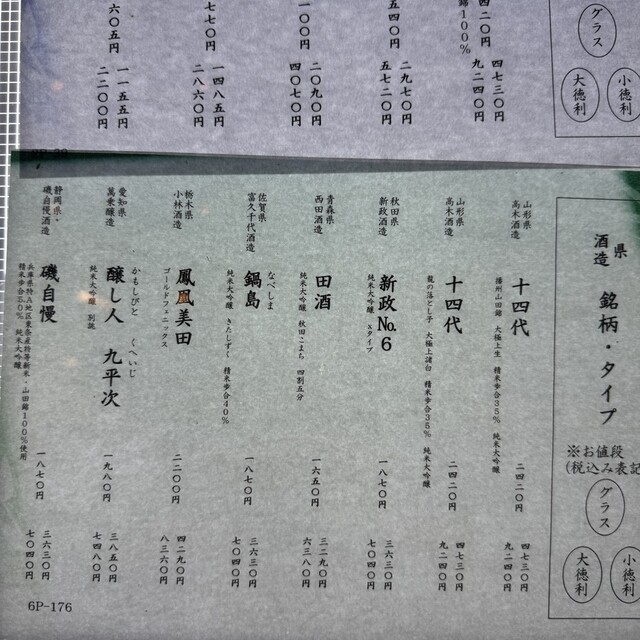 グラス
小徳利
大徳利
四二〇円
四七三〇円
九二四〇円
錦100%
五四〇円
二九七〇円
五七二〇円
一〇〇円
二〇九〇円
四〇七〇円
七七〇円
一四八五円
二八六〇円
六〇五円
一一五五円
二二〇〇円
県
酒造
銘柄・タイプ
※お値段
(税込み表記
グラス
小徳利
大徳利
山形県
高木酒造
十四代
播州山田錦 大極上生 精米歩合35% 純米大吟醸
二四二〇円
四七三〇円
九二四〇円
山形県
高木酒造
十四代
龍の落とし子 大極上諸白 精米歩合35% 純米大吟醸
二四二〇円
四七三〇円
九二四〇円
秋田県
新政酒造
新政No.6
純米大吟醸 xタイプ
一八七〇円
三六三〇円
七〇四〇円
青森県
西田酒造
田酒
純米大吟醸 秋田こまち 四割五分
一六五〇円
三二九〇円
六三八〇円
佐賀県
富久千代酒造
なべしま
鍋島
純米大吟醸 きたしずく 精米歩合40%
一八七〇円
三六三〇円
七〇四〇円
栃木県
小林酒造
鳳凰美田
ゴールドフェニックス
二二〇〇円
四二九〇円
八三六〇円
愛知県
萬乗醸造
かもしびと くへいじ
醸し人 九平次
純米大吟醸 別誂
一九八〇円
三八五〇円
七四八〇円
静岡県・
磯自慢酒造
磯自慢
兵庫県特A地区東条産特等新米・山田錦100%使用
精米歩合50% 純米大吟醸
一八七〇円
三六三〇円
七〇四〇円
6P-176